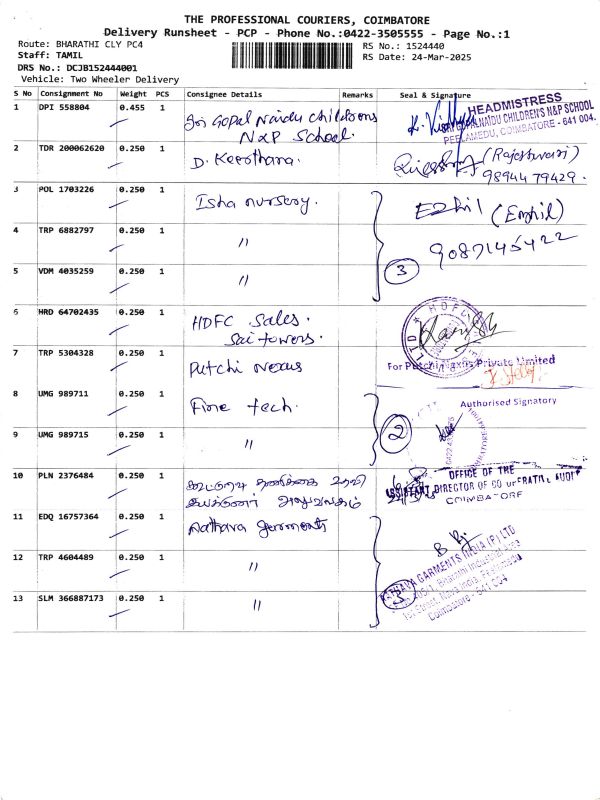 THE PROFESSIONAL COURIERS, COIMBATORE
Delivery Runsheet - PCP - Phone No.:0422-3505555 - Page No.:1
Route: BHARATHI CLY PC4 RS No.: 1524440
Staff: TAMIL RS Date: 24-Mar-2025
DRS No.: DCJB152444001
Vehicle: Two Wheeler Delivery
S No Consignment No Weight PCS Consignee Details Remarks Seal & Signature
1 DPI 558804 0.455 1 Gopal Naidu Childrens HEADMISTRESS
NXP School. GOPALNAIDU CHILDREN'S N&P SCHOOL
PEELAMEDU, COIMBATORE - 641 004.
2 TDR 200062620 0.250 1 D. Keerthana. (Rajeshwari)
9894479429.
3 POL 1703226 0.250 1 Isha nursery. Ezhil (Ezhil)
4 TRP 6882797 0.250 1 " 9087145422
5 VDM 4035259 0.250 1 " 3
6 HRD 64702435 0.250 1 HDFC Sales. HDFC LTD
Sai towers.
7 TRP 5304328 0.250 1 Putchi nexus For Putchi Nexus Private Limited
8 UMG 989711 0.250 1 Fine tech. Authorised Signatory
9 UMG 989715 0.250 1 " 2
10 PLN 2376484 0.250 1 கூட்டுறவு தணிக்கை உதவி OFFICE OF THE
இயக்குனர் அலுவலகம் ASSISTANT DIRECTOR OF CO-OPERATIVE AUDIT
COIMBATORE
11 EDQ 16757364 0.250 1 Nathava garments
12 TRP 4604489 0.250 1 " GARMENTS INDIA (P) LTD
Bharathi Industrial Area
1st Street, Nava India, Peelamedu
Coimbatore - 641 004
13 SLM 366887173 0.250 1 " 3